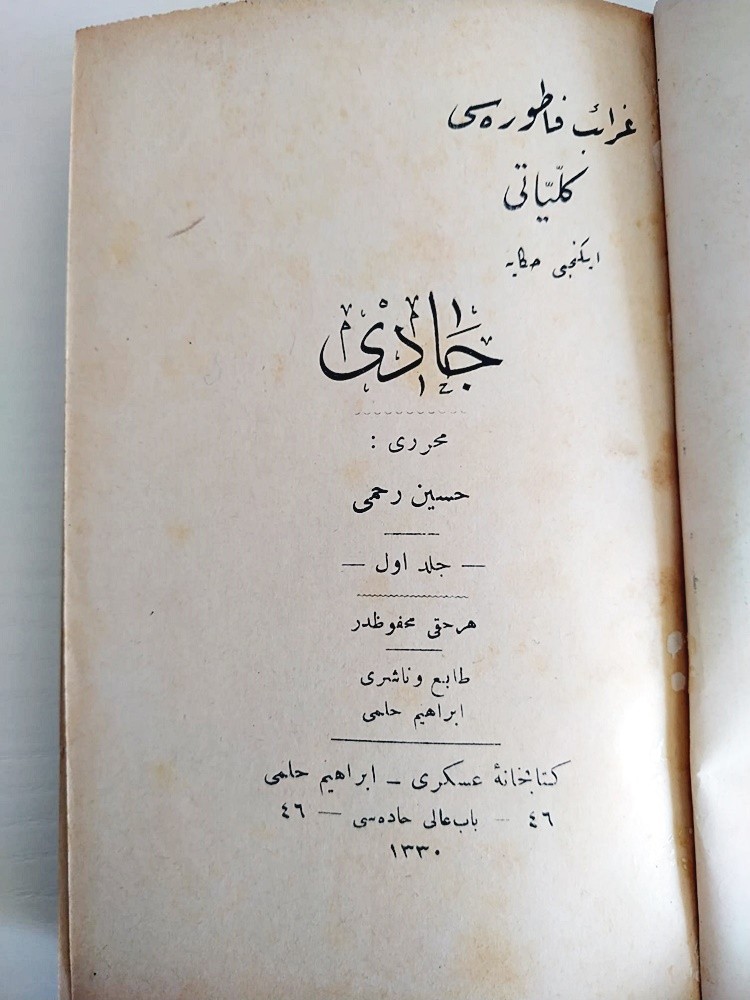 غرائب فاطوره‌سی
كلّيّاتی
ايكنجی حكايه
جادی
محرری :
حسين رحمی
— جلد اول —
هر حقی محفوظدر
طابع و ناشری
ابراهيم حلمی
كتابخانهٔ عسكری – ابراهيم حلمی
٤٦ — باب عالی جاده‌سی — ٤٦
١٣٣٠